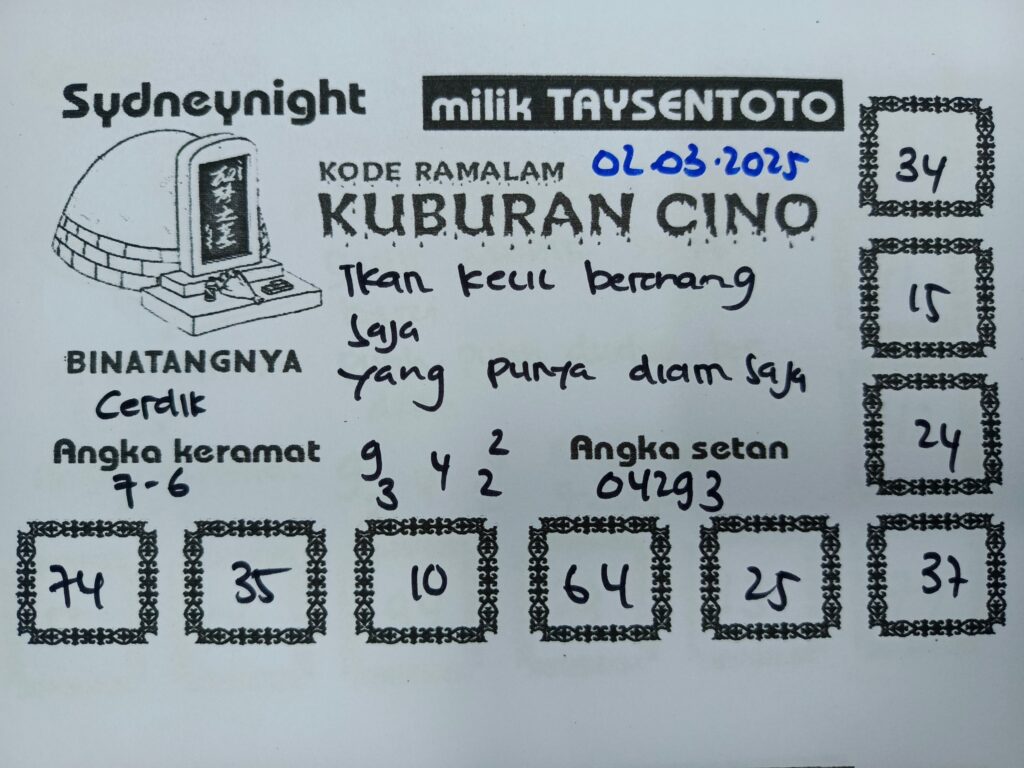 Sydneynight
milik TAYSENTOTO
KODE RAMALAM 02.03.2025
KUBURAN CINO
Ikan kecil berenang
saja
yang punya diam saja
BINATANGNYA
Cerdik
Angka keramat
7-6
9 4 2
3 2
Angka setan
04293
34
15
24
74 35 10 64 25 37